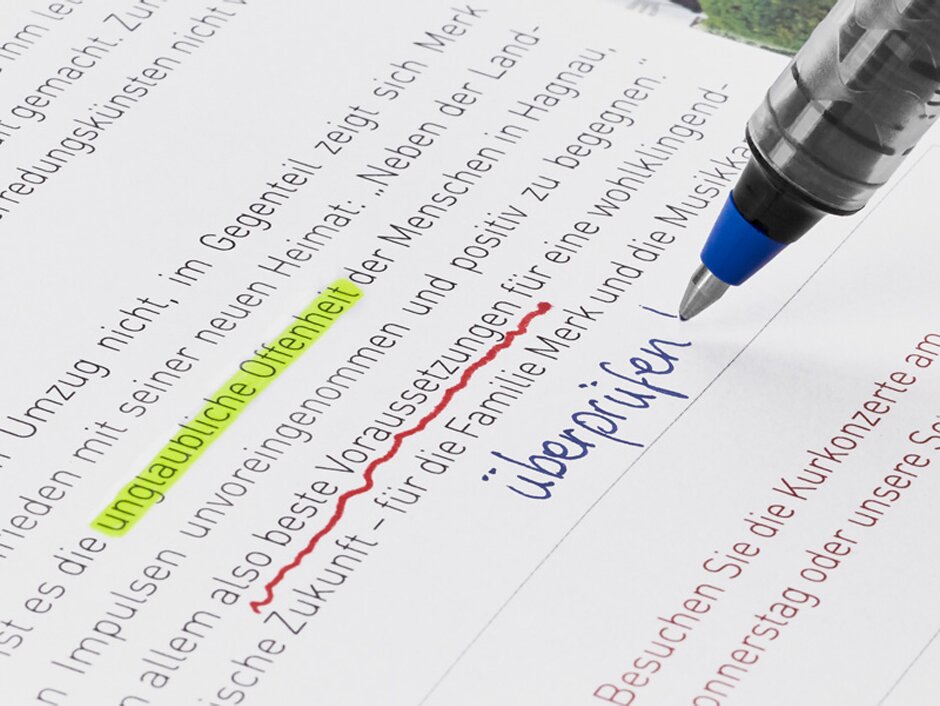 gemacht. Zur
redungskünsten nicht
Umzug nicht, im Gegenteil zeigt sich Merk
rieden mit seiner neuen Heimat: „Neben der Land-
ist es die unglaubliche Offenheit der Menschen in Hagnau,
n Impulsen unvoreingenommen und positiv zu begegnen.“
allem also beste Voraussetzungen für eine wohlklingend-
ische Zukunft – für die Familie Merk und die Musikka
überprüfen!
Besuchen Sie die Kurkonzerte am
onnerstag oder unsere